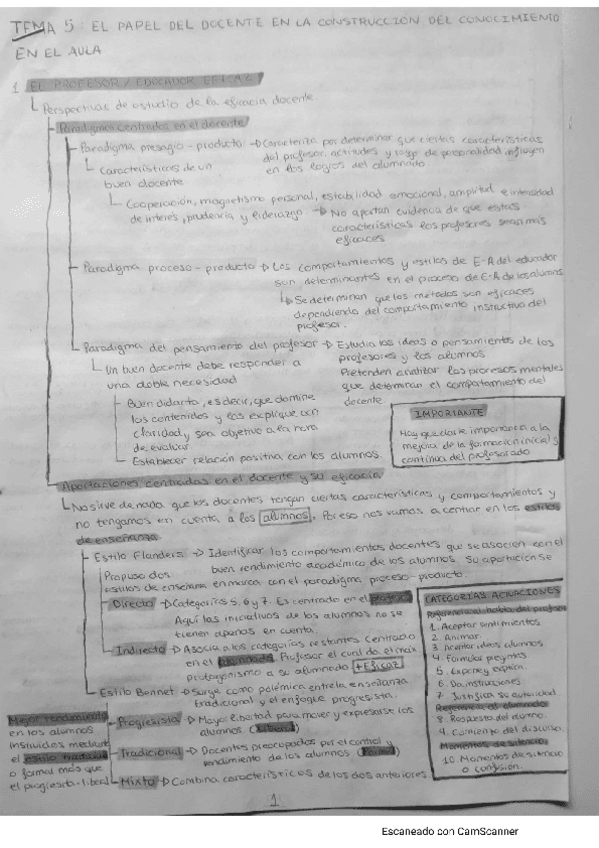 TEMA 5: EL PAPEL DEL DOCENTE EN LA CONSTRUCCIÓN DEL CONOCIMIENTO
EN EL AULA
1. EL PROFESOR/EDUCADOR EFICAZ
Perspectivas de estudio de la eficacia docente
Paradigmas centrados en el docente
Paradigma presagio-producto → Caracteriza por determinar que ciertas características
del profesor, actitudes y rasgo de personalidad influyen
en los logros del alumnado
Características de un
buen docente
Cooperación, magnetismo personal, estabilidad emocional, amplitud e intensidad
de interés, prudencia y liderazgo → No aportan evidencia de que estas
características los profesores sean más
eficaces
Paradigma proceso-producto → Los comportamientos y estilos de E-A del educador
son determinantes en el proceso de E-A de los alumnos
Se determinan que los métodos son eficaces
dependiendo del comportamiento instructivo del
profesor.
Paradigma del pensamiento del profesor → Estudia las ideas o pensamientos de los
profesores y los alumnos
Pretenden analizar los procesos mentales
que determinan el comportamiento del
docente
Un buen docente debe responder a
una doble necesidad
Buen didacta, es decir, que domine
los contenidos y los explique con
claridad y sea objetivo a la hora
de evaluar
Establecer relación positiva con los alumnos.
IMPORTANTE
Hay que darle importancia a la
mejora de la formación inicial y
continua del profesorado
Aportaciones centradas en el docente y su eficacia
No sirve de nada que los docentes tengan ciertas características y comportamientos y
no tengamos en cuenta a los alumnos. Por eso nos vamos a centrar en los estilos
de enseñanza
Estilo Flanders → Identificar los comportamientos docentes que se asocien con el
buen rendimiento académico de los alumnos. Su aportación se
enmarca con el paradigma proceso-producto.
Propuso dos
estilos de enseñanza
Directo → Categorías 5, 6 y 7. Es centrado en el
Aquí las iniciativas de los alumnos no se
tienen apenas en cuenta.
Indirecto → Asocia a las categorías restantes. Centrado
en el alumnado. Profesor el cual da el max
protagonismo a su alumnado +Eficaz
Estilo Bennet → Surge como polémica entre la enseñanza
tradicional y el enfoque progresista.
Progresista → Mayor libertad para mover y expresarse los
alumnos (Liberal)
Tradicional → Docentes preocupados por el control y
rendimiento de los alumnos (Formal)
Mixto → Combina características de los dos anteriores
Mejor rendimiento
en los alumnos
instruidos mediante
el estilo tradicional
o formal más que
el progresista-liberal
CATEGORIAS ACTUACIONES
1. Aceptar sentimientos
2. Animar.
3. Aceptar ideas alumnos
4. Formular preguntas
5. Expone y explica.
6. Da instrucciones
7. Justifica su autoridad
Referencia al alumnado
8. Respuesta del alumno
9. Comienzo del discurso.
Momentos de silencio
10. Momentos de silencio
o confusión.
1
Escaneado con CamScanner